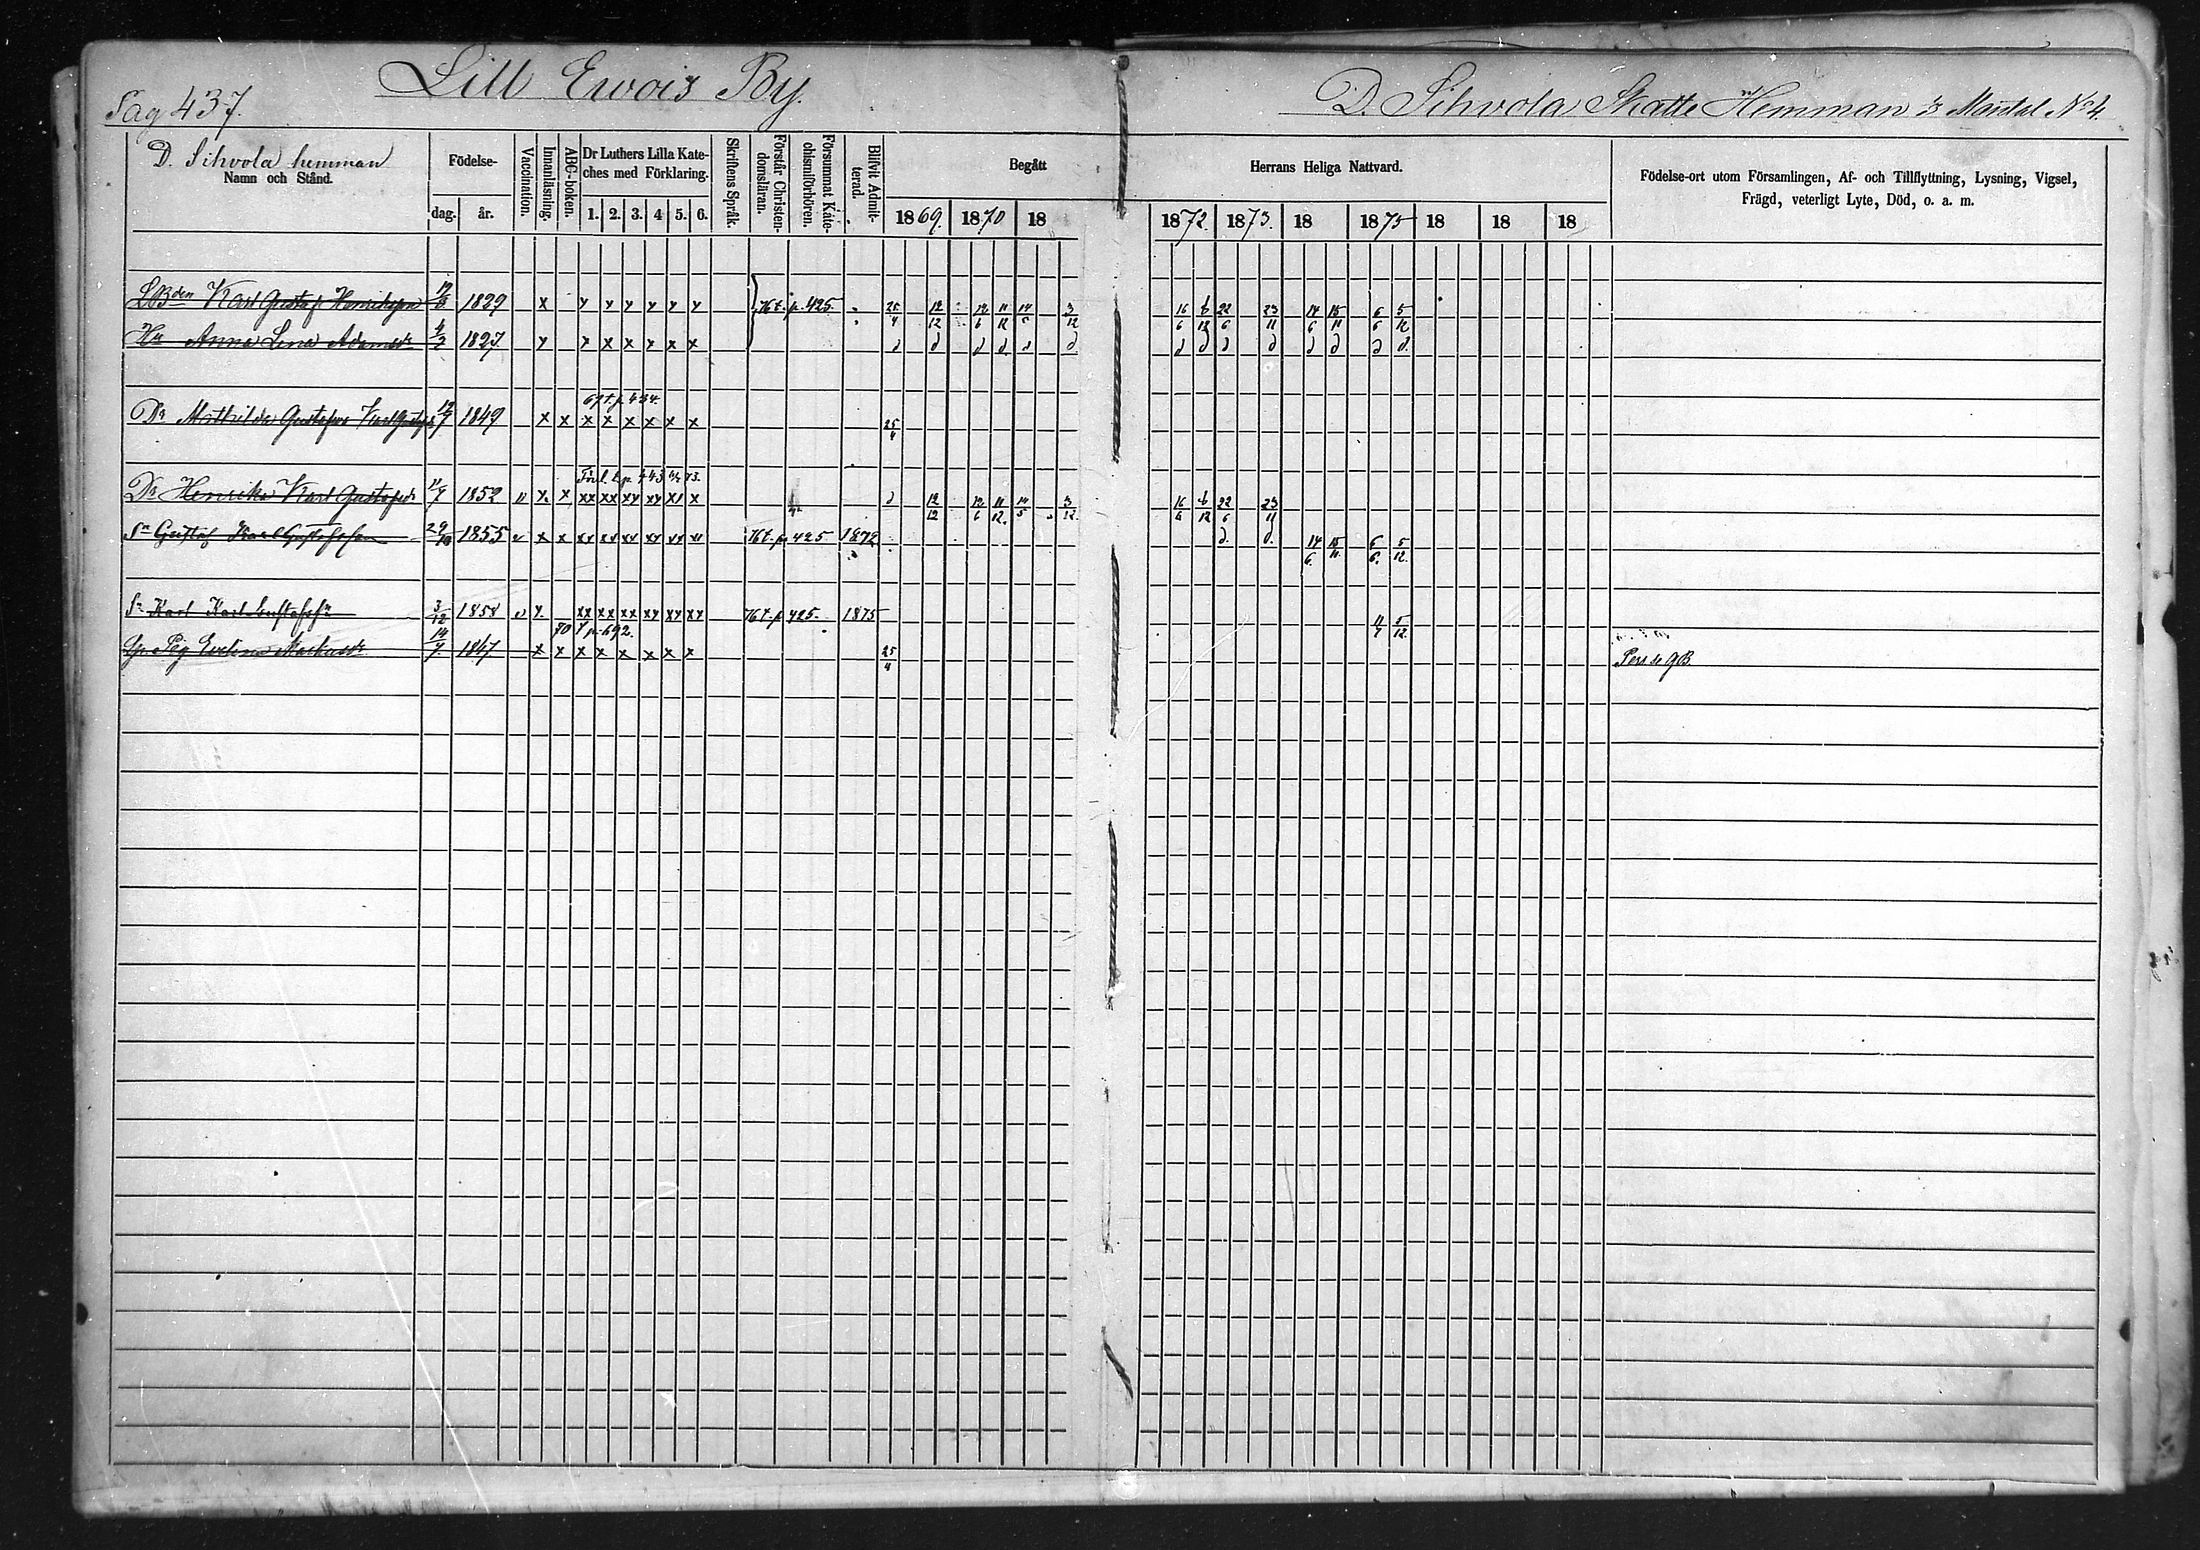 Pag 437.
Lill Ewois By.
D. Sihvola Skatte Hemman ⅓ Mantal No 4.
D. Sihvola hemman
Namn och Stånd.
Födelse-
dag. år.
Vaccination.
Innanläsning.
ABC-boken.
Dr Luthers Lilla Kate-
ches med Förklaring.
1. 2. 3. 4 5. 6.
Skriftens Språk.
Förstår Christen-
domsläran.
Försummat Kate-
chismiförhören.
Blifvit Admit-
terad.
Begått
Herrans Heliga Nattvard.
1869. 1870 18
1872. 1873. 18 1875 18 18 18
Födelse-ort utom Församlingen, Af- och Tillflyttning, Lysning, Vigsel,
Frägd, veterligt Lyte, Död, o. a. m.
LBden Karl Gustaf Henriksson 1829 x y y y y y y 76 t. p. 425. 25/4 12/12 12/6 11/12 3/12 16/6 6/12 22/6 23/11 14/6 15/11 6/6 5/12
Hu Anna Lena Adamsdr 4/3 1827 y y x x y x x d d d d d d d d d d d d d d
69 t. p. 434.
Dr Mathilda Gustafva Karl Gustafsdr 1849 x x x x x x x x 25/4
Dr Henrika Karl Gustafsdr 11/7 1852 v x x xx xx xy xy x x d 12/12 12/6 11/12 14/5 3/12 16/6 6/12 22/6 23/11
Sn Gustaf Karl Gustafsson 29/10 1855 v x x 76 t. p. 425 1872 d. d. 14/6. 15/11. 6/6. 5/12.
Sn Karl Karl Gustafsn 3/12 1858 v x. xx xx xx xy xy xy 76 t. p. 425. 1875 5/12.
70 t. p. 692.
Pig Evelina Markusdr 14/7. 1847. x x x x x x x x 25/4